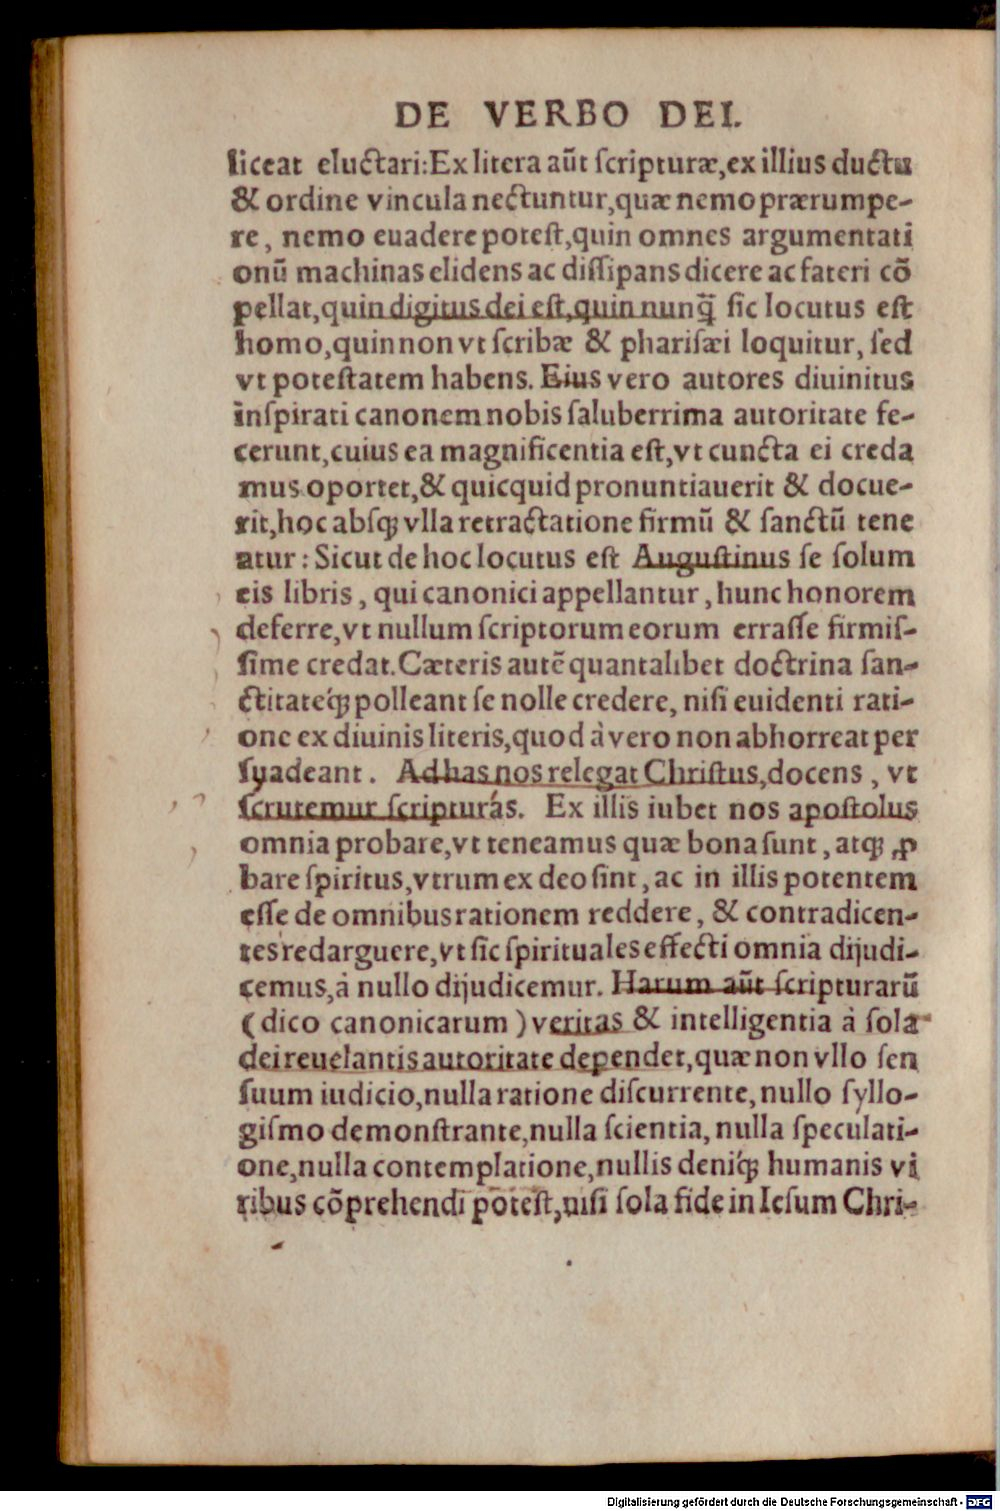 DE VERBO DEI.
liceat eluctari: Ex litera aūt scripturæ, ex illius ductu
& ordine vincula nectuntur, quæ nemo prærumpe-
re, nemo euadere potest, quin omnes argumentati
onū machinas elidens ac dissipans dicere ac fateri cō
pellat, quin digitus dei est, quin nunq̃ sic locutus est
homo, quin non vt scribæ & pharisæi loquitur, sed
vt potestatem habens. Eius vero autores diuinitus
inspirati canonem nobis saluberrima autoritate fe-
cerunt, cuius ea magnificentia est, vt cuncta ei creda
mus oportet, & quicquid pronuntiauerit & docue-
rit, hoc absq; vlla retractatione firmū & sanctū tene
atur: Sicut de hoc locutus est Augustinus se solum
eis libris, qui canonici appellantur, hunc honorem
deferre, vt nullum scriptorum eorum errasse firmis-
sime credat. Cæteris autē quantalibet doctrina san-
ctitateq́; polleant se nolle credere, nisi euidenti rati-
one ex diuinis literis, quod à vero non abhorreat per
syadeant. Ad has nos relegat Christus, docens, vt
scrutemur scripturás. Ex illis iubet nos apostolus
omnia probare, vt teneamus quæ bona sunt, atq; ꝓ
bare spiritus, vtrum ex deo sint, ac in illis potentem
esse de omnibus rationem reddere, & contradicen-
tes redarguere, vt sic spirituales effecti omnia dijudi-
cemus, à nullo dijudicemur. Harum aūt scripturarū
(dico canonicarum) veritas & intelligentia à sola
dei reuelantis autoritate dependet, quæ non vllo sen
suum iudicio, nulla ratione discurrente, nullo syllo-
gismo demonstrante, nulla scientia, nulla speculati-
one, nulla contemplatione, nullis deniq́; humanis vi
ribus cōprehendi potest, nisi sola fide in Iesum Chri-
Digitalisierung gefördert durch die Deutsche Forschungsgemeinschaft - DFG